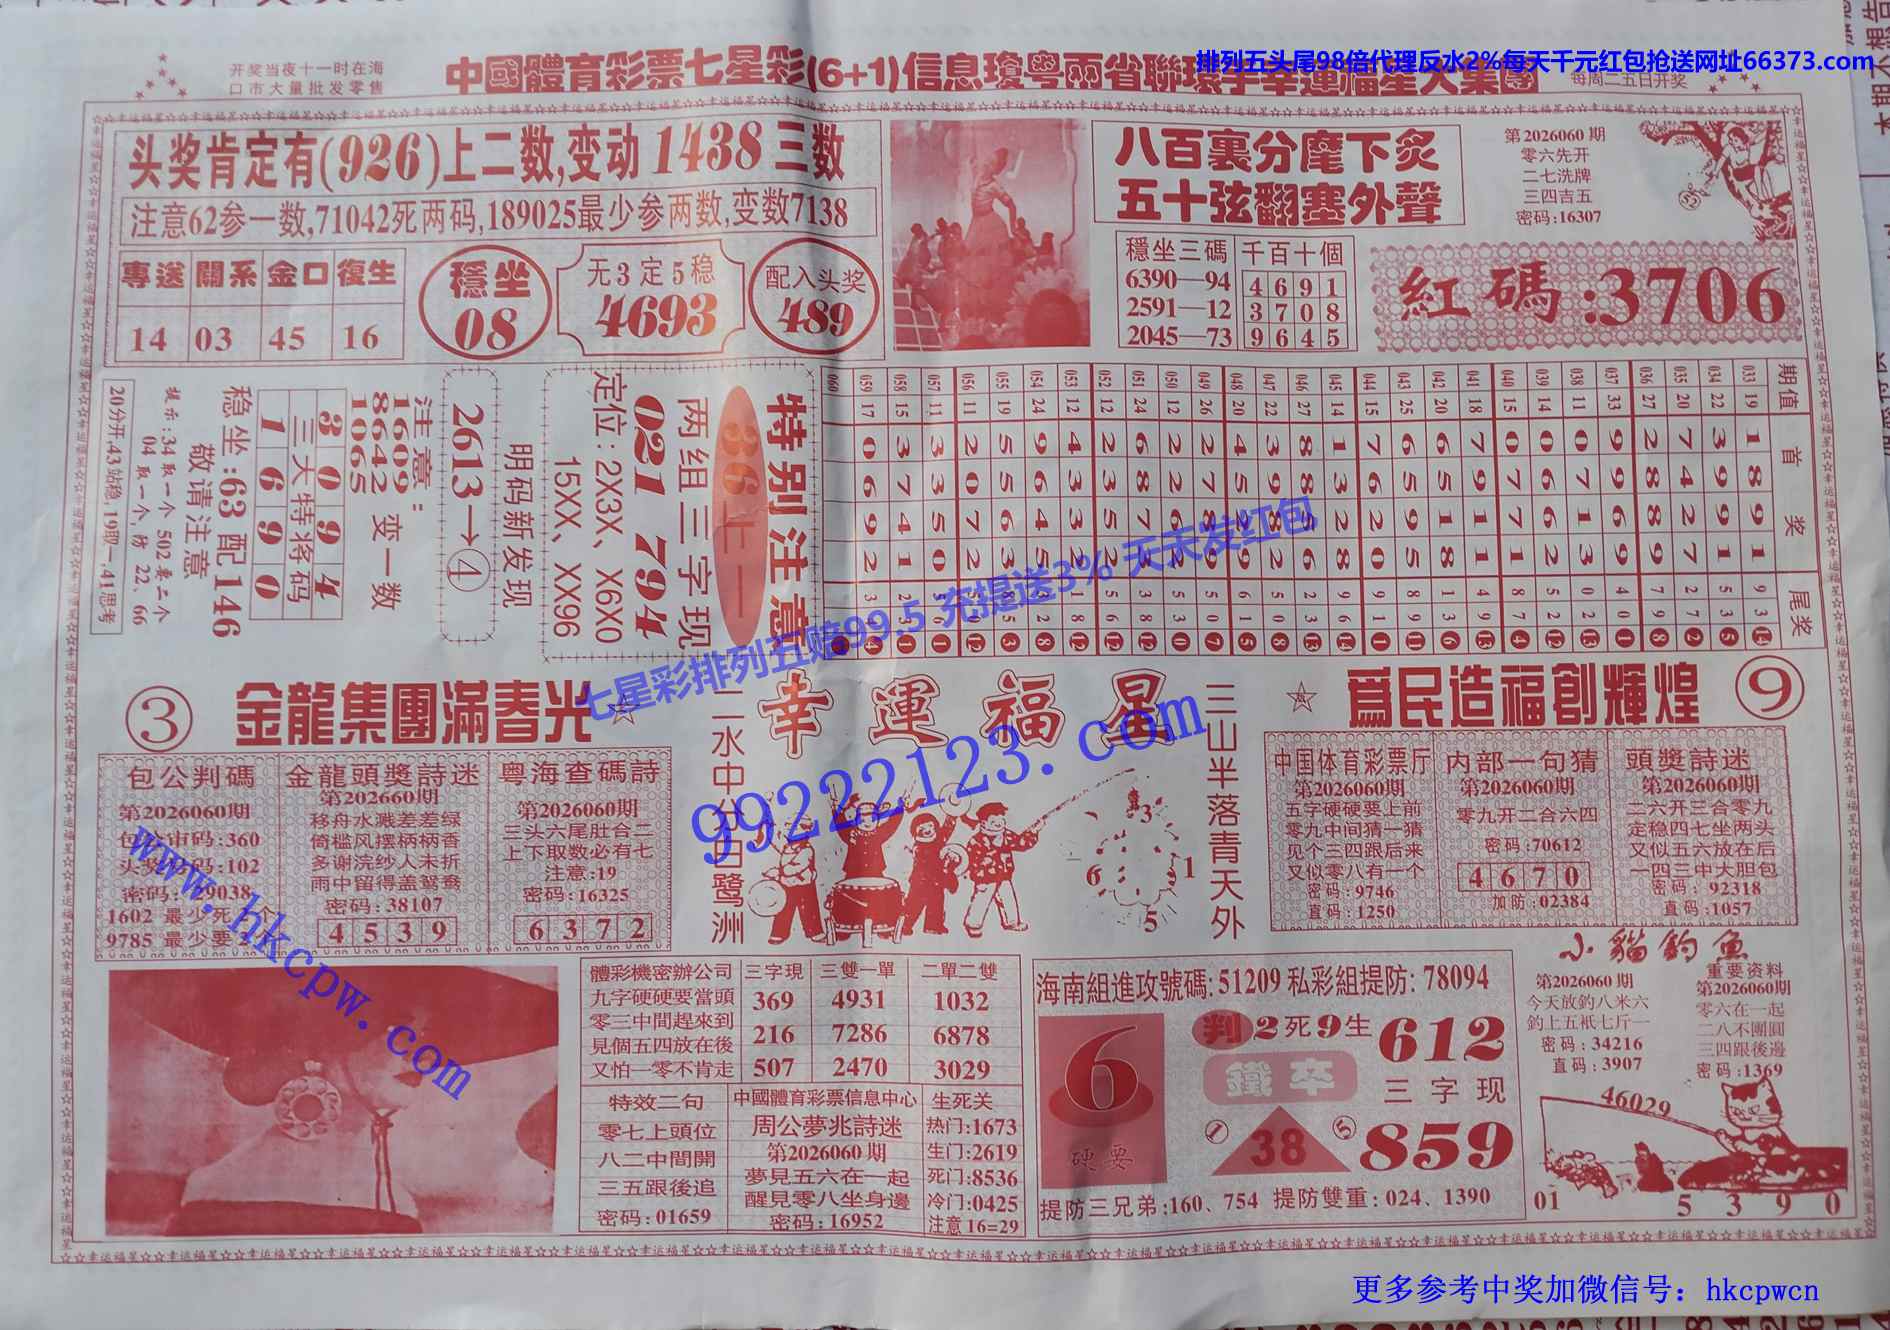 排列五头尾98倍代理反水2%每天千元红包抢送网址66373.com
开奖当夜十一时在海
口市大量批发零售
中國體育彩票七星彩(6+1)信息瓊粤兩省聯環手幸運福星大集團
每周二五日开奖
头奖肯定有(926)上二数,变动1438三数
注意62参一数,71042死两码,189025最少参两数,变数7138
專送 關系 金口 復生
14 03 45 16
穩坐
08
无3定5稳
4693
配入头奖
489
八百裏分麾下炙
五十弦翻塞外聲
穩坐三碼 千百十個
6390—94 4691
2591—12 3708
2045—73 9645
第2026060期
零六先开
二七洗牌
三四吉五
密码:16307
紅碼:3706
特别注意
两组三字现
021 794
定位:2X3X、X6X0
15XX、XX96
明码新发现
2613→④
注意:
1609
8642 变一数
1065
3 0 9 4
三大特将码
1 6 9 0
稳坐:63配146
敬请注意
提示:34取一个502要二个
04取一个,防22、66
20分开,43站稳,19取一,41思考
期值 首奖 尾奖
033 19 1 8 9 1
034 22 3 9 9 1
035 20 7 4 2 7
036 27 2 8 8 9
037 33 9 9 6 9
038 11 0 7 1 3
039 14 0 6 6 2
040 15 0 7 7 1
041 18 7 9 1 1
042 20 6 5 1 8
043 25 6 5 9 5
044 15 7 6 2 0
045 14 1 3 2 8
046 27 8 8 5 6
047 22 3 9 8 2
048 20 4 5 2 9
049 26 2 7 8 9
050 12
051 24
052 12 2 3 5 2
053 12 4 3 3 2
054 24 9 6 4 5
055 19 5 5 6 3
056 11 2 0 7 2
057 11 3 3 5 0
058 15 3 7 4 1
059 17 0 6 9 2
060
七星彩排列五赔99.5 充提送3% 天天发红包
99222123.com
www.hkcpw.com
③ 金龍集團滿春光
幸運福星
爲民造福創輝煌 ⑨
二水中分白鹭洲
三山半落青天外
3
6 1
5
包公判碼
第2026060期
包公市码:360
密码:29038
1602 最少死
9785 最少要
金龍頭獎詩迷
第202660期
移舟水溅差差绿
倚槛风摆柄柄香
多谢浣纱人未折
雨中留得盖鸳鸯
密码:38107
4 5 3 9
粤海查碼詩
第2026060期
三头六尾肚合二
上下取数必有七
注意:19
密码:16325
6 3 7 2
中国体育彩票厅
第2026060期
五字硬硬要上前
零九中间猜一猜
见个三四跟后来
又似零八有一个
密码:9746
直码:1250
内部一句猜
第2026060期
零九开二合六四
密码:70612
4 6 7 0
加防:02384
頭獎詩迷
第2026060期
二六开三合零九
定稳四七坐两头
又似五六放在后
一四三中大胆包
密码:92318
直码:1057
體彩機密辦公司 三字現 三雙一單 二單二雙
九字硬硬要當頭 369 4931 1032
零三中間趕來到 216 7286 6878
見個五四放在後
又怕一零不肯走 507 2470 3029
特效二句
零七上頭位
八二中間開
三五跟後追
密码:01659
中國體育彩票信息中心
周公夢兆詩迷
第2026060期
夢見五六在一起
醒見零八坐身邊
密码:16952
生死关
热门:1673
生门:2619
死门:8536
冷门:0425
注意16=29
海南組進攻號碼:51209 私彩組提防:78094
6
硬要
判2死9生 612
鐵卒 三字现
① 38 ⑤ 859
提防三兄弟:160、754 提防雙重:024、1390
小貓釣魚
第2026060期
今天放釣八米六
釣上五祇七斤一
密码:34216
直码:3907
重要资料
第2026060期
零六在一起
二八不團圓
三四跟後邊
密码:1369
46029
01 5 3 9 0
更多参考中奖加微信号：hkcpwcn